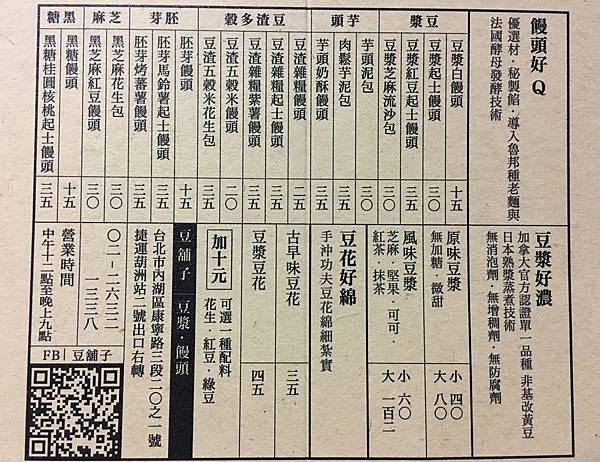 饅頭好Q
優選材·秘製餡·導入魯邦種老麵與
法國酵母發酵技術
豆漿
豆漿白饅頭 十五
豆漿起士饅頭 三〇
豆漿紅豆起士饅頭 三五
豆漿芝麻流沙包 三〇
芋頭
芋頭泥包 三〇
肉鬆芋泥包 三五
芋頭奶酥饅頭 三五
豆渣多穀
豆渣雜糧饅頭 二五
豆渣雜糧起士饅頭 三五
豆渣雜糧紫薯饅頭 三五
豆渣五穀米饅頭 二〇
豆渣五穀米花生包 三五
胚芽
胚芽饅頭 十五
胚芽馬鈴薯起士饅頭 三五
胚芽烤蕃薯饅頭 三五
芝麻
黑芝麻花生包 三〇
黑芝麻紅豆饅頭 三〇
黑糖
黑糖饅頭 十五
黑糖桂圓核桃起士饅頭 三五
豆漿好濃
加拿大官方認證單一品種 非基改黃豆
日本熟漿蒸煮技術
無消泡劑·無增稠劑·無防腐劑
原味豆漿 小 四〇
無加糖·微甜 大 八〇
風味豆漿
芝麻·堅果·可可· 小 六〇
紅茶·抹茶 大 一百二
豆花好綿
手沖功夫豆花綿細紮實
古早味豆花 三五
豆漿豆花 四五
加十元
可選一種配料
花生·紅豆·綠豆
豆舖子 豆漿·饅頭
台北市內湖區康寧路三段二〇之一號
捷運葫洲站二號出口右轉
〇二-二六三二
一三三八
營業時間
中午十二點至晚上九點
FB|豆舖子